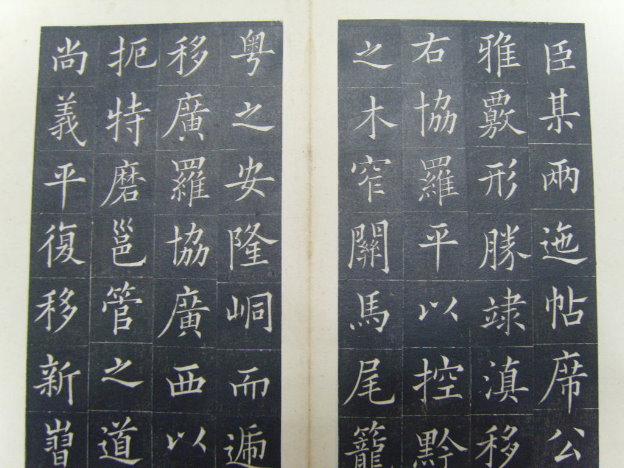 臣某兩迤帖席公
雅覈形勝隷滇移
右協羅平以控黔
之木窄關馬尾籠
粵之安隆峒而
移廣羅協廣西以
扼特磨邕管之道
尚義平復移新嶍